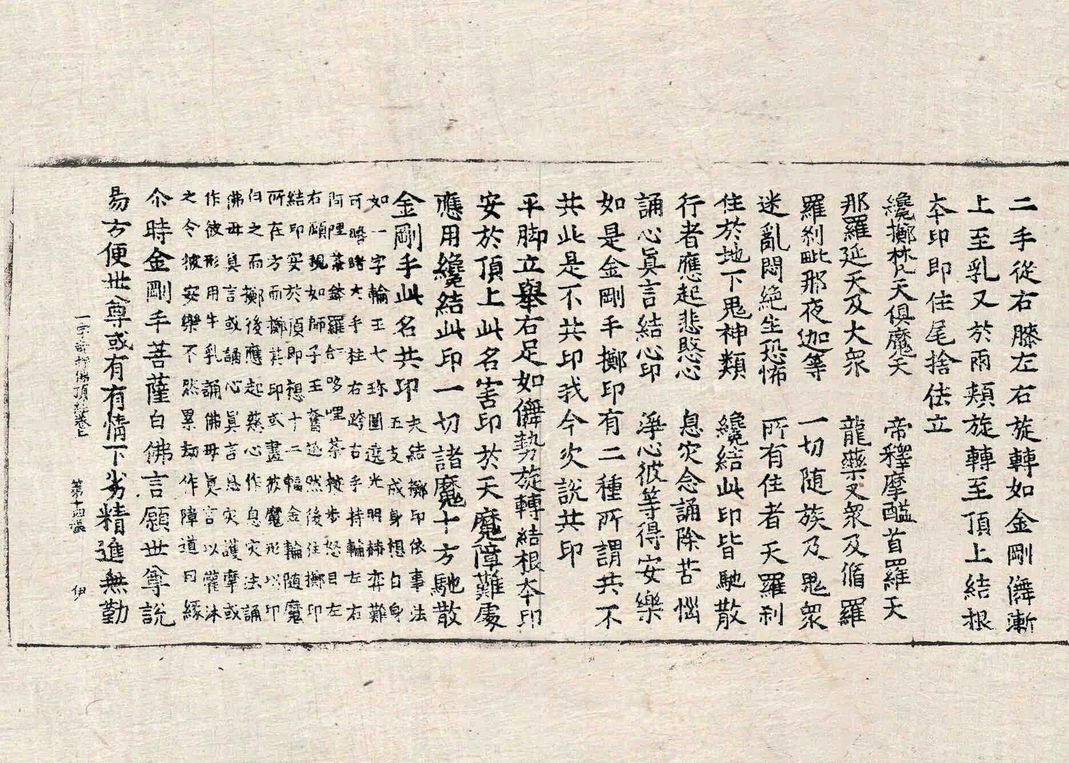 二手從右膝左右旋轉如金剛儛漸
上至乳又於兩頰旋轉至頂上結根
夲印即住尾捨佉立
纔擲梵天俱魔天　帝釋摩醯首羅天
那羅延天及大衆　龍藥叉衆及脩羅
羅刹毗那夜迦等　一切随族及鬼衆
迷亂悶絶生恐怖　所有住者天羅刹
住於地下鬼神類　纔結此印皆馳散
行者應起悲愍心　息灾念誦除苦惱
誦心真言結心印　淨心彼等得安樂
如是金剛手擲印有二種所謂共不
共此是不共印我今次說共印
平脚立舉右足如儛勢旋轉結根夲印
安於頂上此名害印於天魔障難處
應用纔結此印一切諸魔十方馳散
金剛手此名共印　夫結擲印依事法
如一字輪王七珎圍遶光明赫弈難
可瞻睹左手柱右跨右手持輪左右
右顧視如師子王奮迅然後住擲印
結印安於頂即想十二輻金輪随魔
所在方而擲其印或畫彼魔形以印
印之而擲後應起慈心作息灾法誦
佛母真言或誦心真言息灾護摩或
作彼形用牛乳誦佛母真言以灌沐
之令彼安樂不然累劫作障道因緣
尒時金剛手菩薩白佛言願世尊說
易方便世尊或有有情下劣精進無勤
一字 佛頂經卷上　第十四張　伊